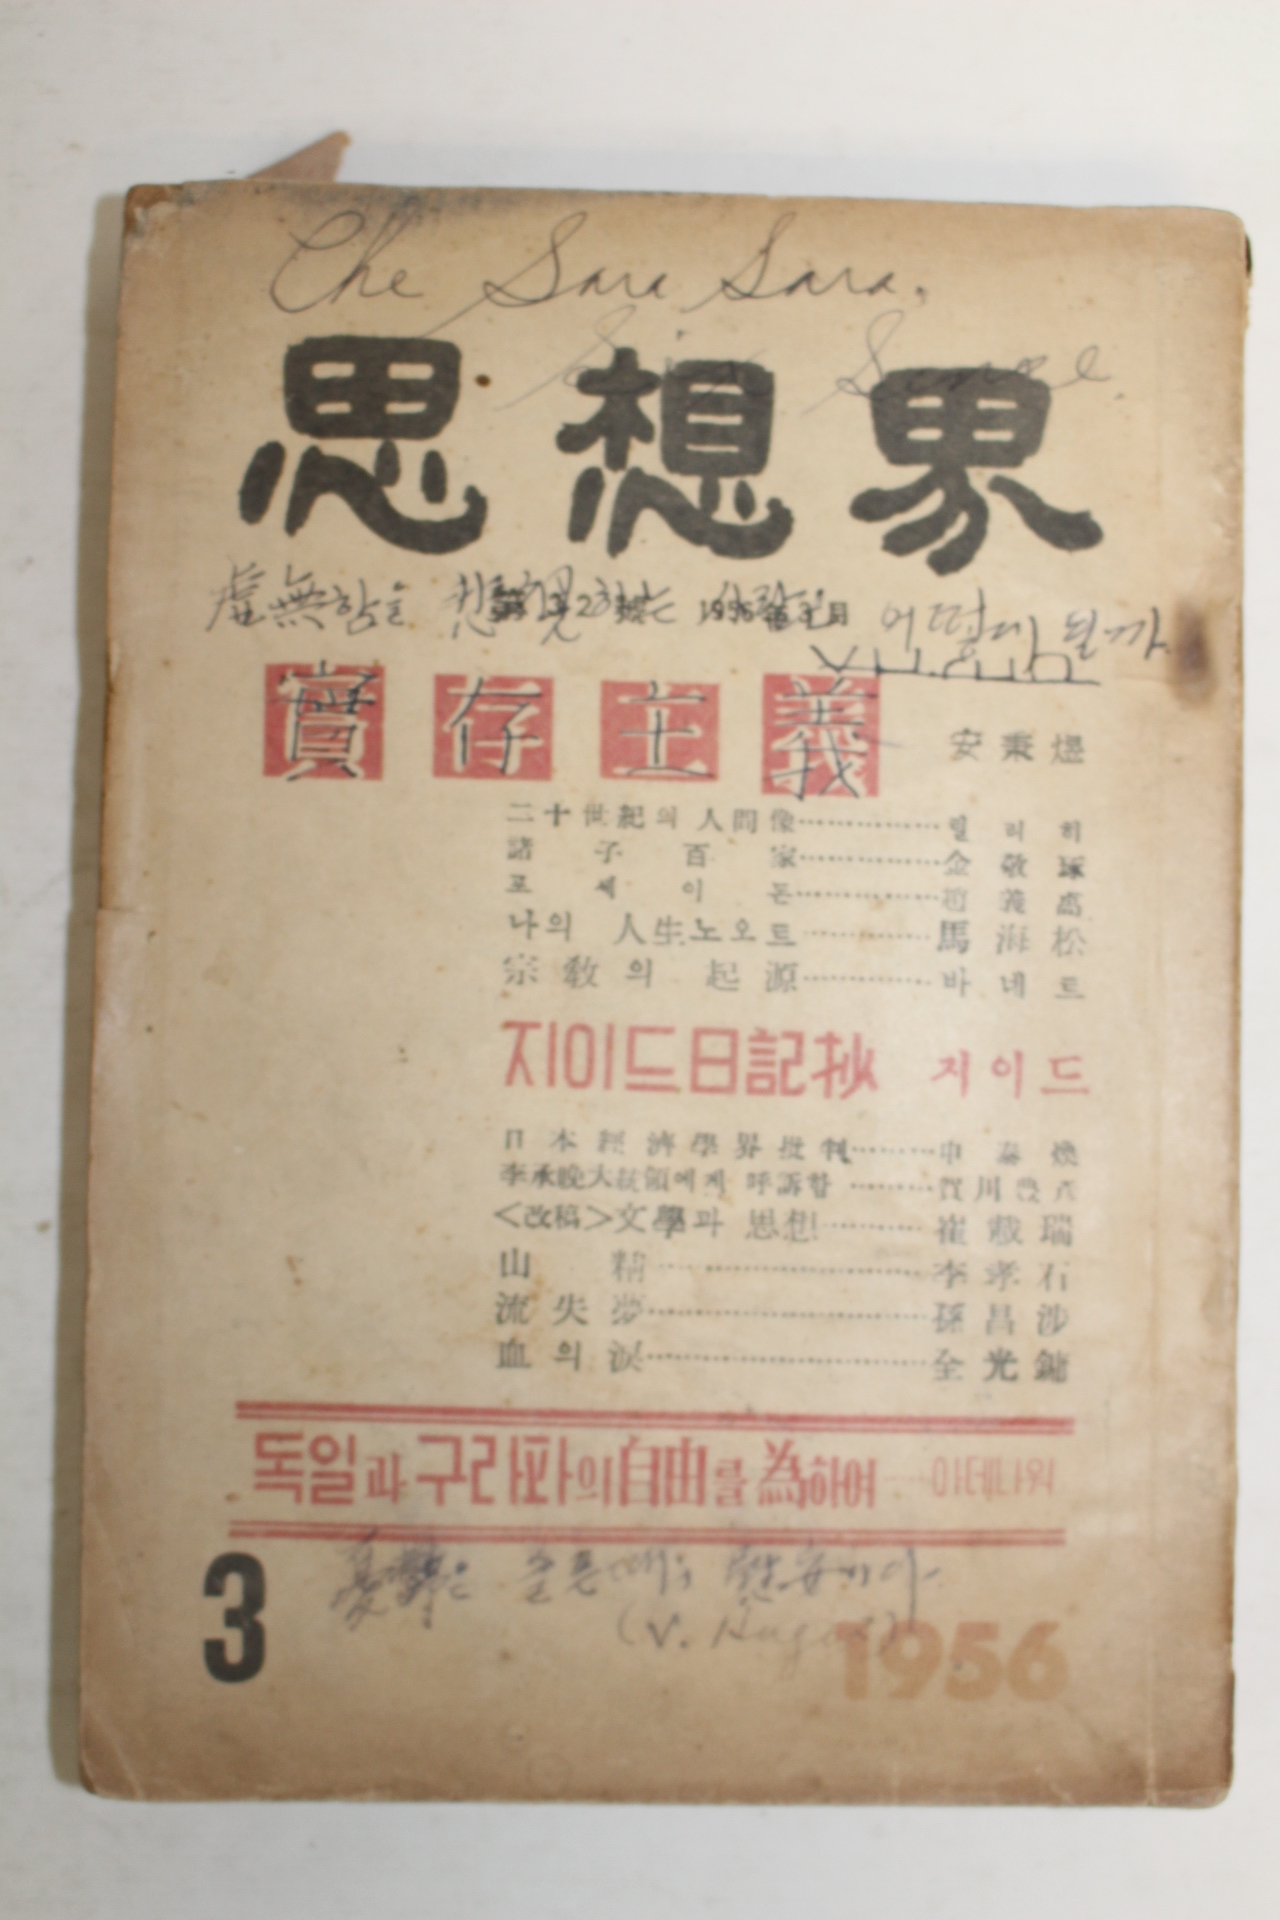 Che Sara Sara.
思想界
虛無함을 悲觀하는 사람이 어떻게 될까
1956年 3月
實存主義 安秉煜
二十世紀의 人間像 틸리히
諸子百家 金敬琢
로세이돈 趙義卨
나의 人生노오트 馬海松
宗敎의 起源 바네트
지이드日記抄 지이드
日本經濟學界批判 申泰煥
李承晩大統領에게 呼訴함 賀川豊彦
<改稿>文學과 思想 崔載瑞
山精 李孝石
流失夢 孫昌涉
血의 淚 全光鏞
독일과 구라파의 自由를 為하여 — 아데나워
3 슬픈 때의 慰安이다.
(V. Hugo)
1956